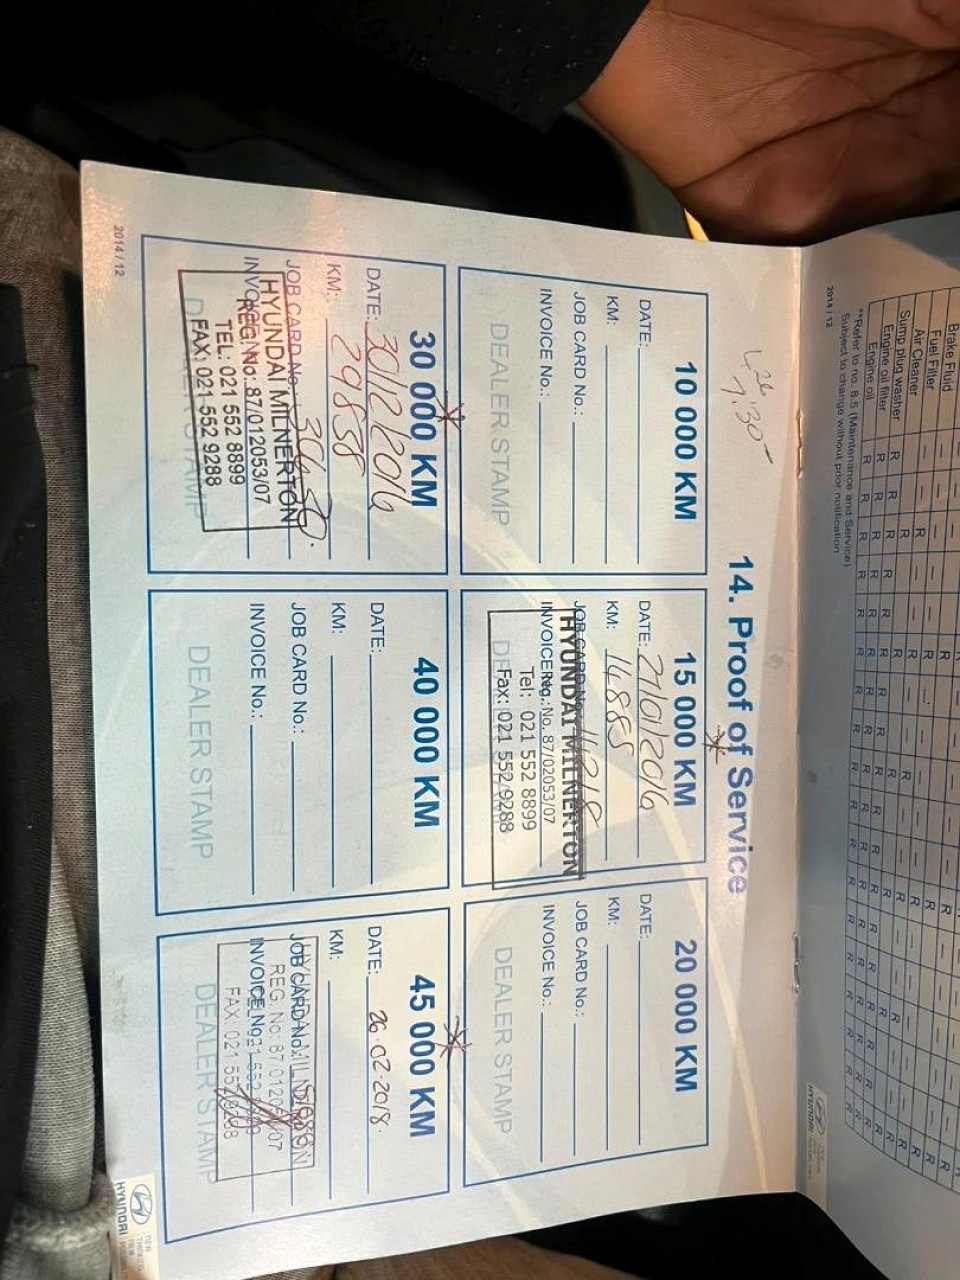 14. Proof of Service
10 000 KM
DATE:
KM:
JOB CARD No.:
INVOICE No.:
DEALER STAMP
15 000 KM
DATE: 27/01/2016
KM: 14885
JOB CARD No.:
HYUNDAI MILNERTON
INVOICE No.:
Reg. No. 87/02053/07
Tel: 021 552 8899
Fax: 021 552 9288
20 000 KM
DATE:
KM:
JOB CARD No.:
INVOICE No.:
DEALER STAMP
30 000 KM
DATE: 30/12/2016
KM: 29888
JOB CARD No.:
HYUNDAI MILNERTON
INVOICE No.:
REG. No: 87/012053/07
TEL: 021 552 8899
FAX: 021 552 9288
40 000 KM
DATE:
KM:
JOB CARD No.:
INVOICE No.:
DEALER STAMP
45 000 KM
DATE: 26.02.2018
KM:
JOB CARD No.:
INVOICE No.:
DEALER STAMP
2014 / 12
HYUNDAI
Brake Fluid
Fuel Filter
Air Cleaner
Sump plug washer
Engine oil filter
Engine oil
**Refer to no. 8.5 (Maintenance and Service)
Subject to change without prior notification
2014 / 12
HYUNDAI